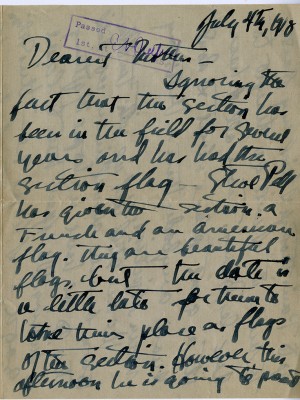 July 4th, 1918
Passed
1st.
Dearest Mother –
Ignoring the
fact that the section has
been in the field for several
years and has had the
section flag – Shoe Pell
has given the section. a
French and an american
flag. They are beautiful
flags, but the date is
a little late for them to
take their place as flags
of the section. However this
afternoon he is going to